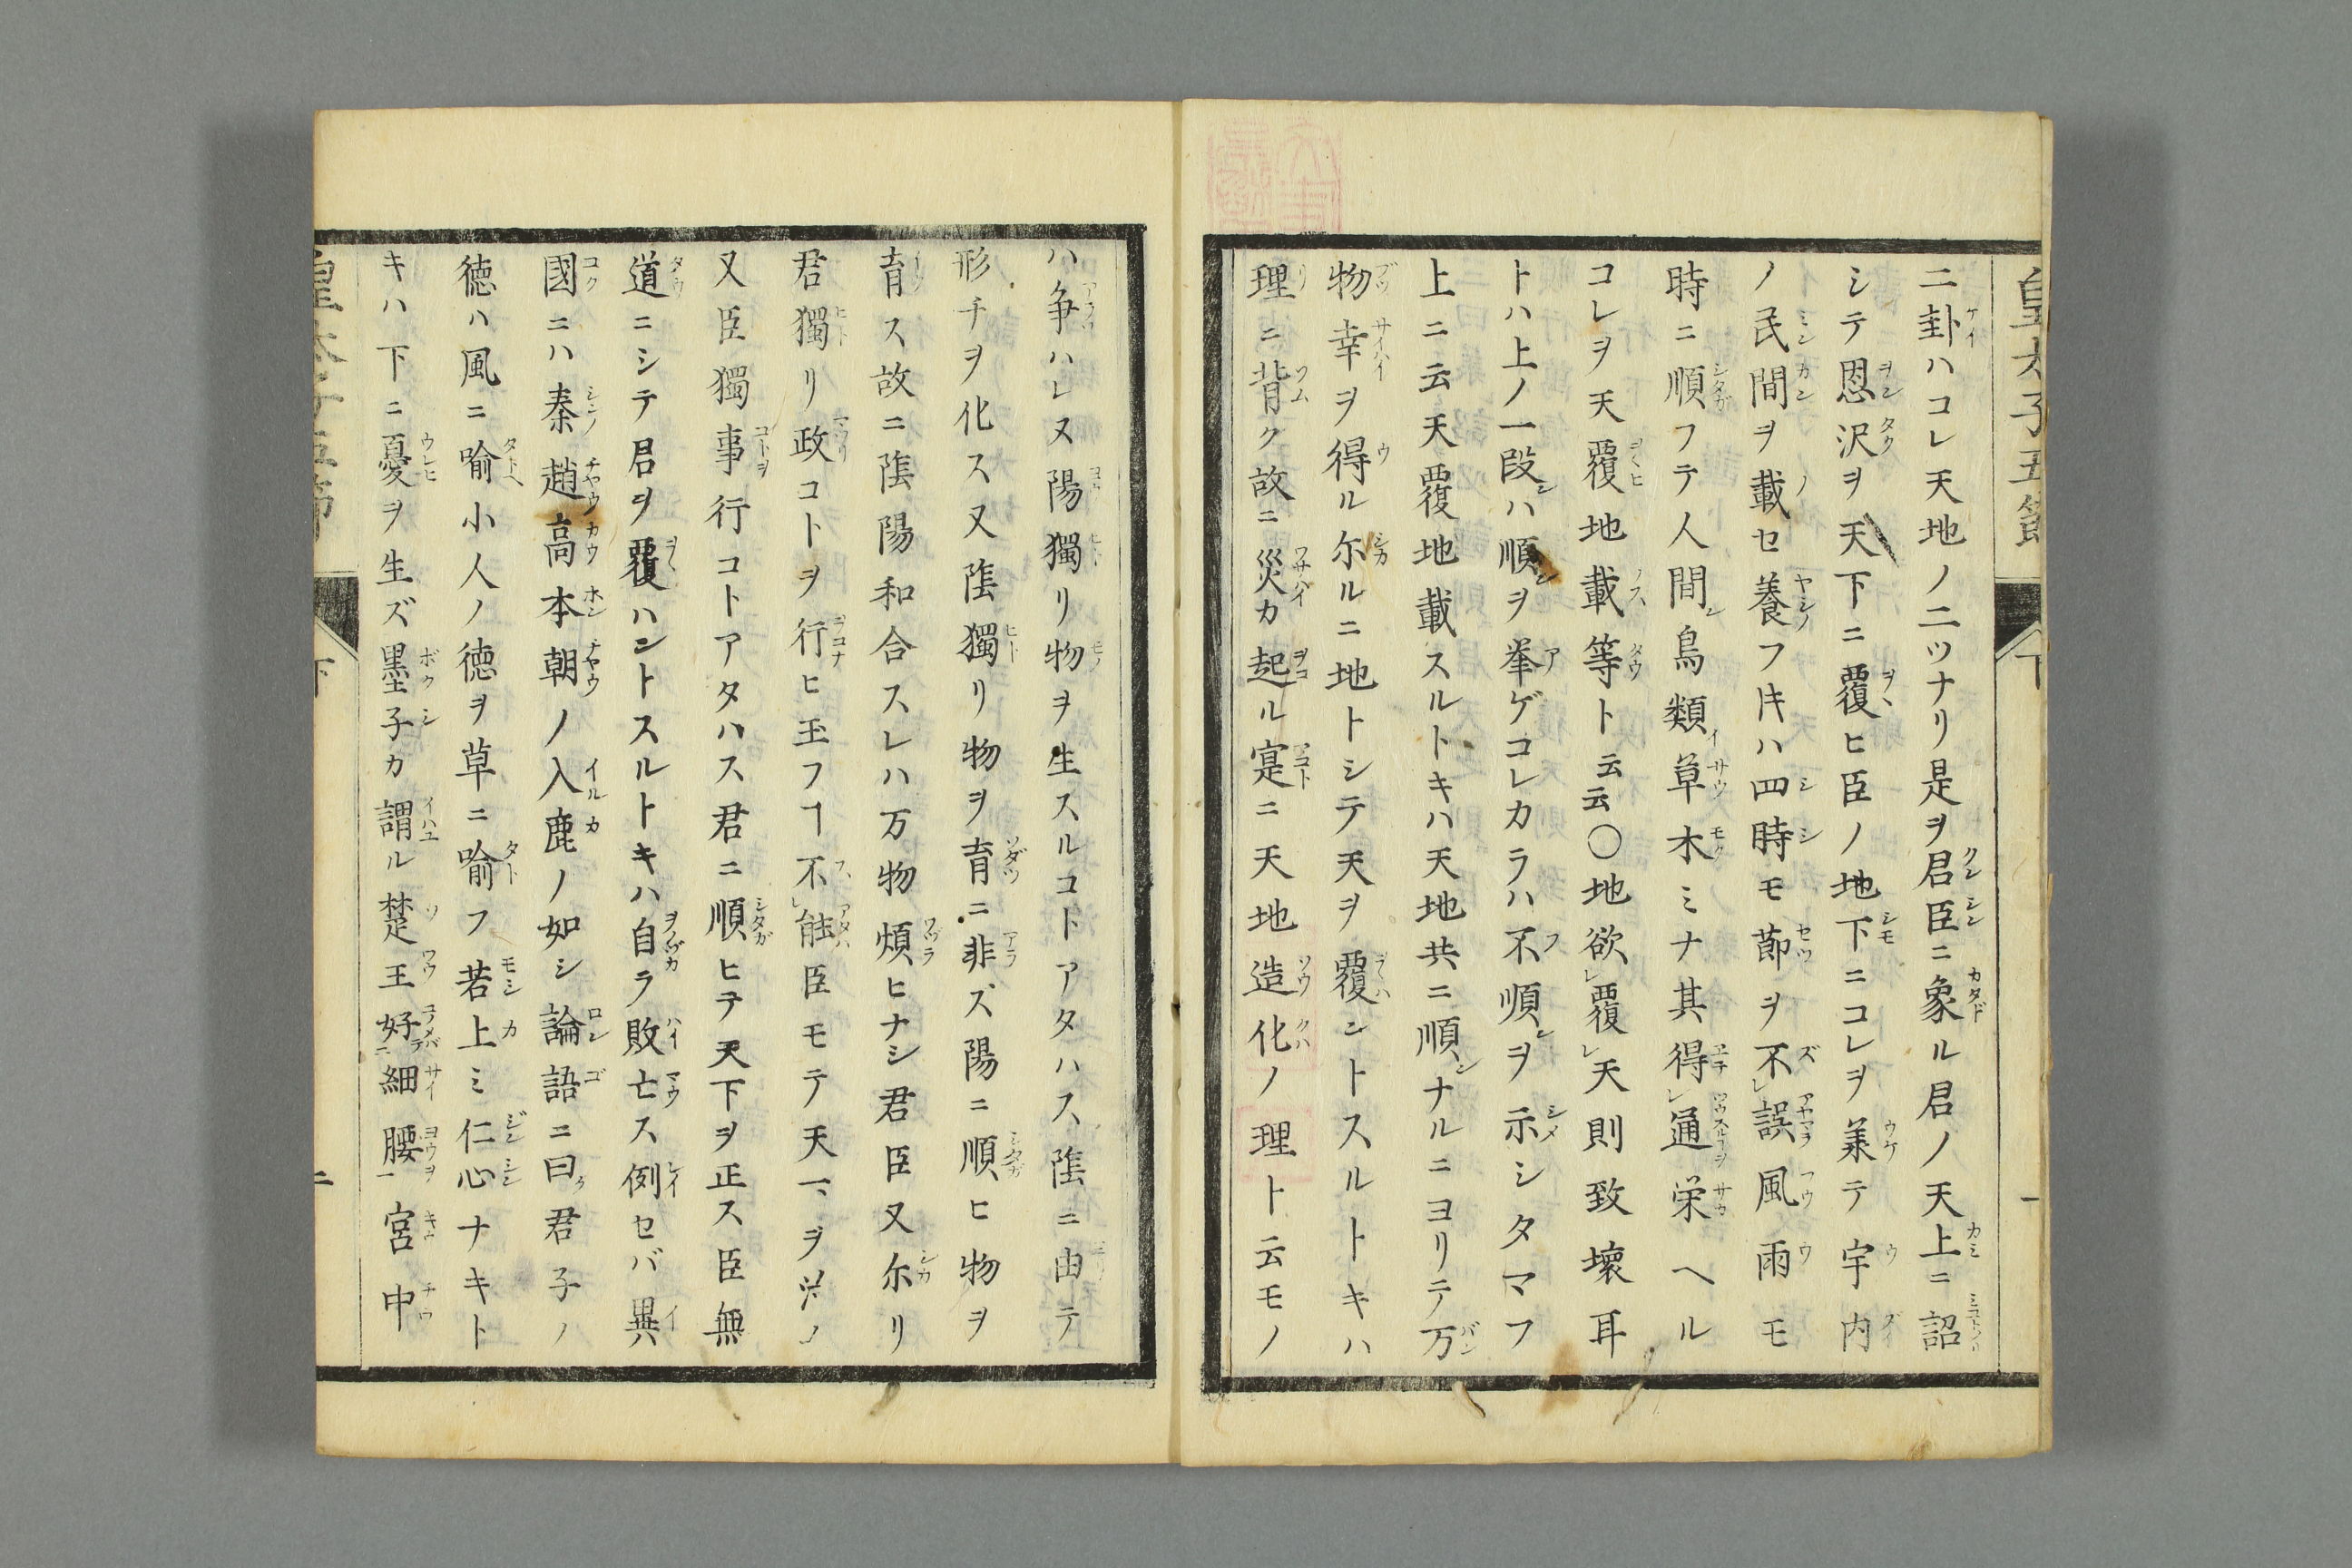 皇太子五節 下 一
二卦ハコレ天地ノ二ツナリ是ヲ君臣ニ象ル君ノ天上ニ詔
シテ恩沢ヲ天下ニ覆ヒ臣ノ地下ニコレヲ兼テ宇内
ノ民間ヲ載セ養フ𪜈ハ四時モ節ヲ不レ誤風雨モ
時ニ順フテ人間鳥類草木ミナ其得レ通栄ヘル
コレヲ天覆地載等ト云云〇地欲レ覆レ天則致壞耳
トハ上ノ一段ハ順ヲ挙ゲコレカラハ不順ヲ示シタマフ
上ニ云天覆地載スルトキハ天地共ニ順ナルニヨリテ万
物幸ヲ得ル尓ルニ地トシテ天ヲ覆ントスルトキハ
理ニ背ク故ニ災カ起ル寔ニ天地造化ノ理ト云モノ
ハ争ハレヌ陽獨リ物ヲ生スルコトアタハス隂ニ由テ
形チヲ化ス又隂獨リ物ヲ育ニ非ズ陽ニ順ヒ物ヲ
育ス故ニ隂陽和合スレハ万物煩ヒナシ君臣又尓リ
君獨リ政コトヲ行ヒ玉フヿ不レ能臣モテ天
又臣獨事行コトアタハス君ニ順ヒテ天下ヲ正ス臣無
道ニシテ君ヲ覆ハントスルトキハ自ラ敗亡ス例セバ異
國ニハ秦趙高本朝ノ入鹿ノ如シ論語ニ曰ク君子ノ
徳ハ風ニ喻小人ノ徳ヲ草ニ喻フ若上ミ仁心ナキト
キハ下ニ憂ヲ生ズ墨子カ謂ル楚王好テニ細腰一宮中
皇太子五節 下 二